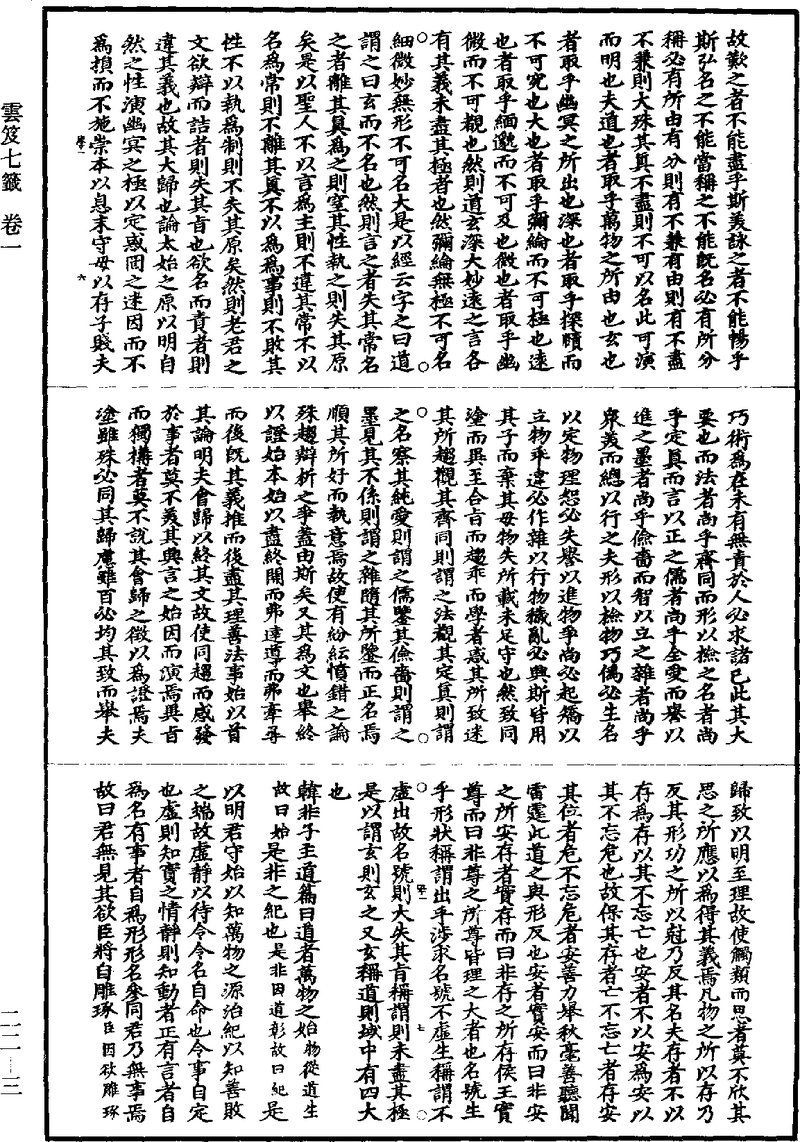 雲笈七籤　卷一
二二—三
故歎之者不能盡乎斯美詠之者不能暢乎
斯弘名之不能當稱之不能既名必有所分
稱必有所由有分則有不兼有由則有不盡
不兼則大殊其真不盡則不可以名此可演
而明也夫道也者取乎萬物之所由也玄也
者取乎幽冥之所出也深也者取乎探賾而
不可究也大也者取乎彌綸而不可極也遠
也者取乎緬邈而不可及也微也者取乎幽
微而不可覩也然則道玄深大妙遠之言各
有其義未盡其極者也然彌綸無極不可名
細微妙無形不可名大是以經云字之曰道
謂之曰玄而不名也然則言之者失其常名
之者離其真為之則窒其性執之則失其原
矣是以聖人不以言為主則不違其常不以
名為常則不離其真不以為為事則不敗其
性不以執為制則不失其原矣然則老君之
文欲辯而詰者則失其旨也欲名而責者則
違其義也故其大歸也論太始之原以明自
然之性演幽冥之極以定惑罔之迷因而不
為損而不施崇本以息末守母以存子賤夫
六
巧術為在未有無責於人必求諸己此其大
要也而法者尚乎齊同而形以檢之名者尚
乎定真而言以正之儒者尚乎全愛而譽以
進之墨者尚乎儉嗇而智以立之雜者尚乎
眾美而總以行之夫形以檢物巧偽必生名
以定物理恕必失譽以進物爭尚必起矯以
立物乎違必作雜以行物穢亂必興斯皆用
其子而棄其母物失所載未足守也然致同
塗而異至合旨而趨乖而學者惑其所致迷
其所趨觀其齊同則謂之法觀其定真則謂
之名察其純愛則謂之儒鑒其儉嗇則謂之
墨見其不係則謂之雜隨其所鑒而正名焉
順其所好而執意焉故使有紛紜憤錯之論
殊趨辯析之爭蓋由斯矣又其為文也舉終
以證始本始以盡終開而弗達導而弗牽尋
而後既其義推而後盡其理善法事始以首
其論明夫會歸以終其文故使同趨而感發
於事者莫不美其興言之始因而演焉異旨
而獨構者莫不說其會歸之徵以為證焉夫
塗雖殊必同其歸慮雖百必均其致而舉夫
歸致以明至理故使觸類而思者莫不欣其
思之所應以為得其義焉凡物之所以存乃
反其形功之所以尅乃反其名夫存者不以
存為存以其不忘亡也安者不以安為安以
其不忘危也故保其存者亡不忘亡者存安
其位者危不忘危者安善力舉秋毫善聽聞
雷霆此道之與形反也安者實安而曰非安
之所安存者實存而曰非存之所存侯王實
尊而曰非尊之所尊皆理之大者也名號生
乎形狀稱謂出乎涉求名號不虛生稱謂不
七
虛出故名號則大失其旨稱謂則未盡其極
是以謂玄則玄之又玄稱道則域中有四大
也
韓非子主道篇曰道者萬物之始物從道生
故曰始是非之紀也是非因道彰故曰紀是
以明君守始以知萬物之源治紀以知善敗
之端故虛靜以待令令名自命也令事自定
也虛則知實之情靜則知動者正有言者自
為名有事者自為形形名參同君乃無事焉
故曰君無見其欲臣將自雕琢臣因欲雕琢